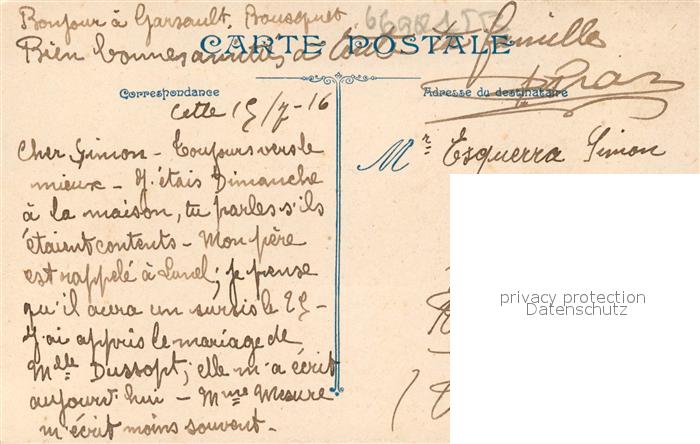 Bonjour à Garsault, Bousquet
Bien bonnes amitiés à toute la famille
CARTE POSTALE
Correspondance
Adresse du destinataire
Cette 15/7-16
Mr Esquerra Simon
Cher Simon - Toujours vers le
mieux - J'étais Dimanche
à la maison, tu parles s'ils
étaient contents - Mon père
est rappelé à Lunel; je pense
qu'il aura un sursis le 25 -
J'ai appris le mariage de
Melle Dussopt; elle m'a écrit
aujourd'hui - Mme Mesure
m'écrit moins souvent -
privacy protection
Datenschutz